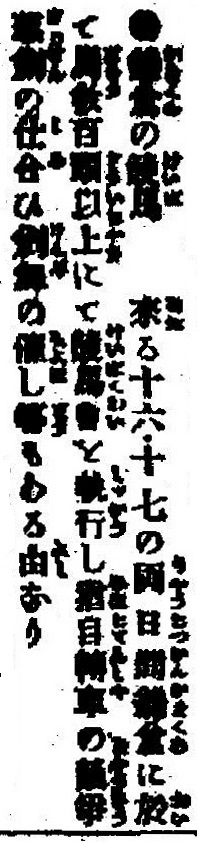 ●鎌倉の競馬 來る十六、十七の両日間鎌倉に於
て馬数百頭以上にて競馬會を執行し猶自轉車の競爭
撃劍の仕合ひ劍舞の催し等もある由なり